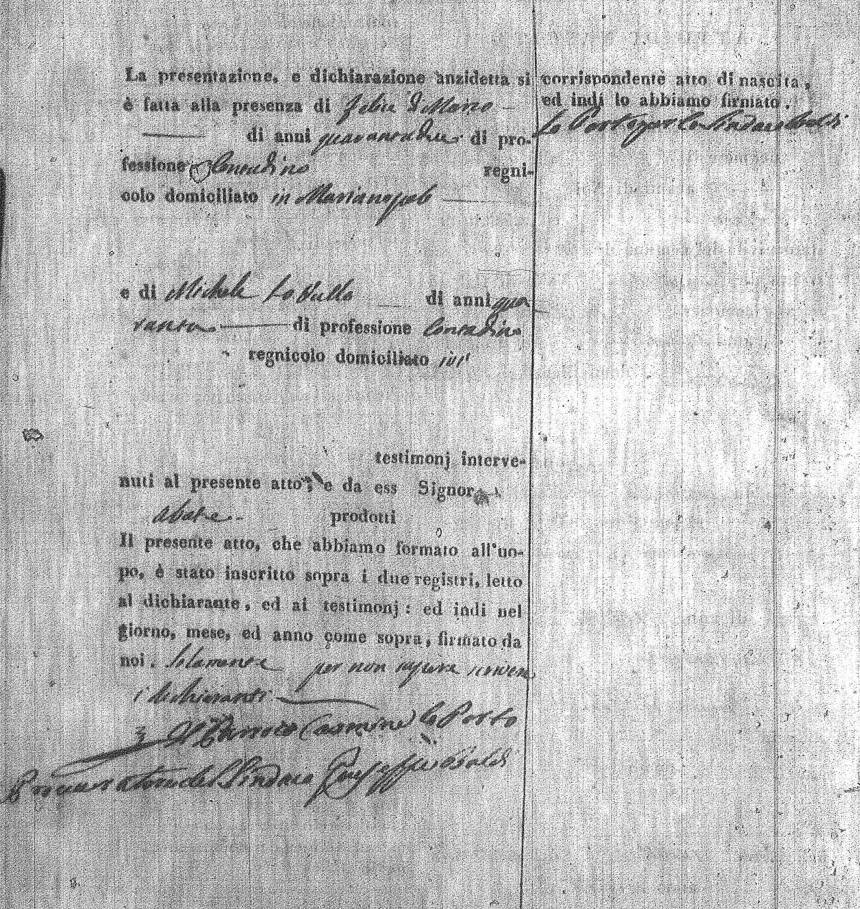 La presentazione, e dichiarazione anzidetta si
è fatta alla presenza di Felice di Marco
di anni quarantadue di pro-
fessione Contadino regni-
colo domiciliato in Marianopoli
e di Michele Lo Vullo di anni qua
ranta di professione Contadino
regnicolo domiciliato ivi
testimonj interve-
nuti al presente atto, e da ess Signor
abate prodotti
Il presente atto, che abbiamo formato all'uo-
po, è stato inscritto sopra i due registri, letto
al dichiarante, ed ai testimonj: ed indi nel
giorno, mese, ed anno come sopra, firmato da
noi. Solamente per non sapere scrivere
i dichiaranti
Il Parroco Carmine Lo Porto
del Sindaco Giuseppe
corrispondente atto di nascita,
ed indi lo abbiamo firmato.
Lo Porto per lo Sindaco